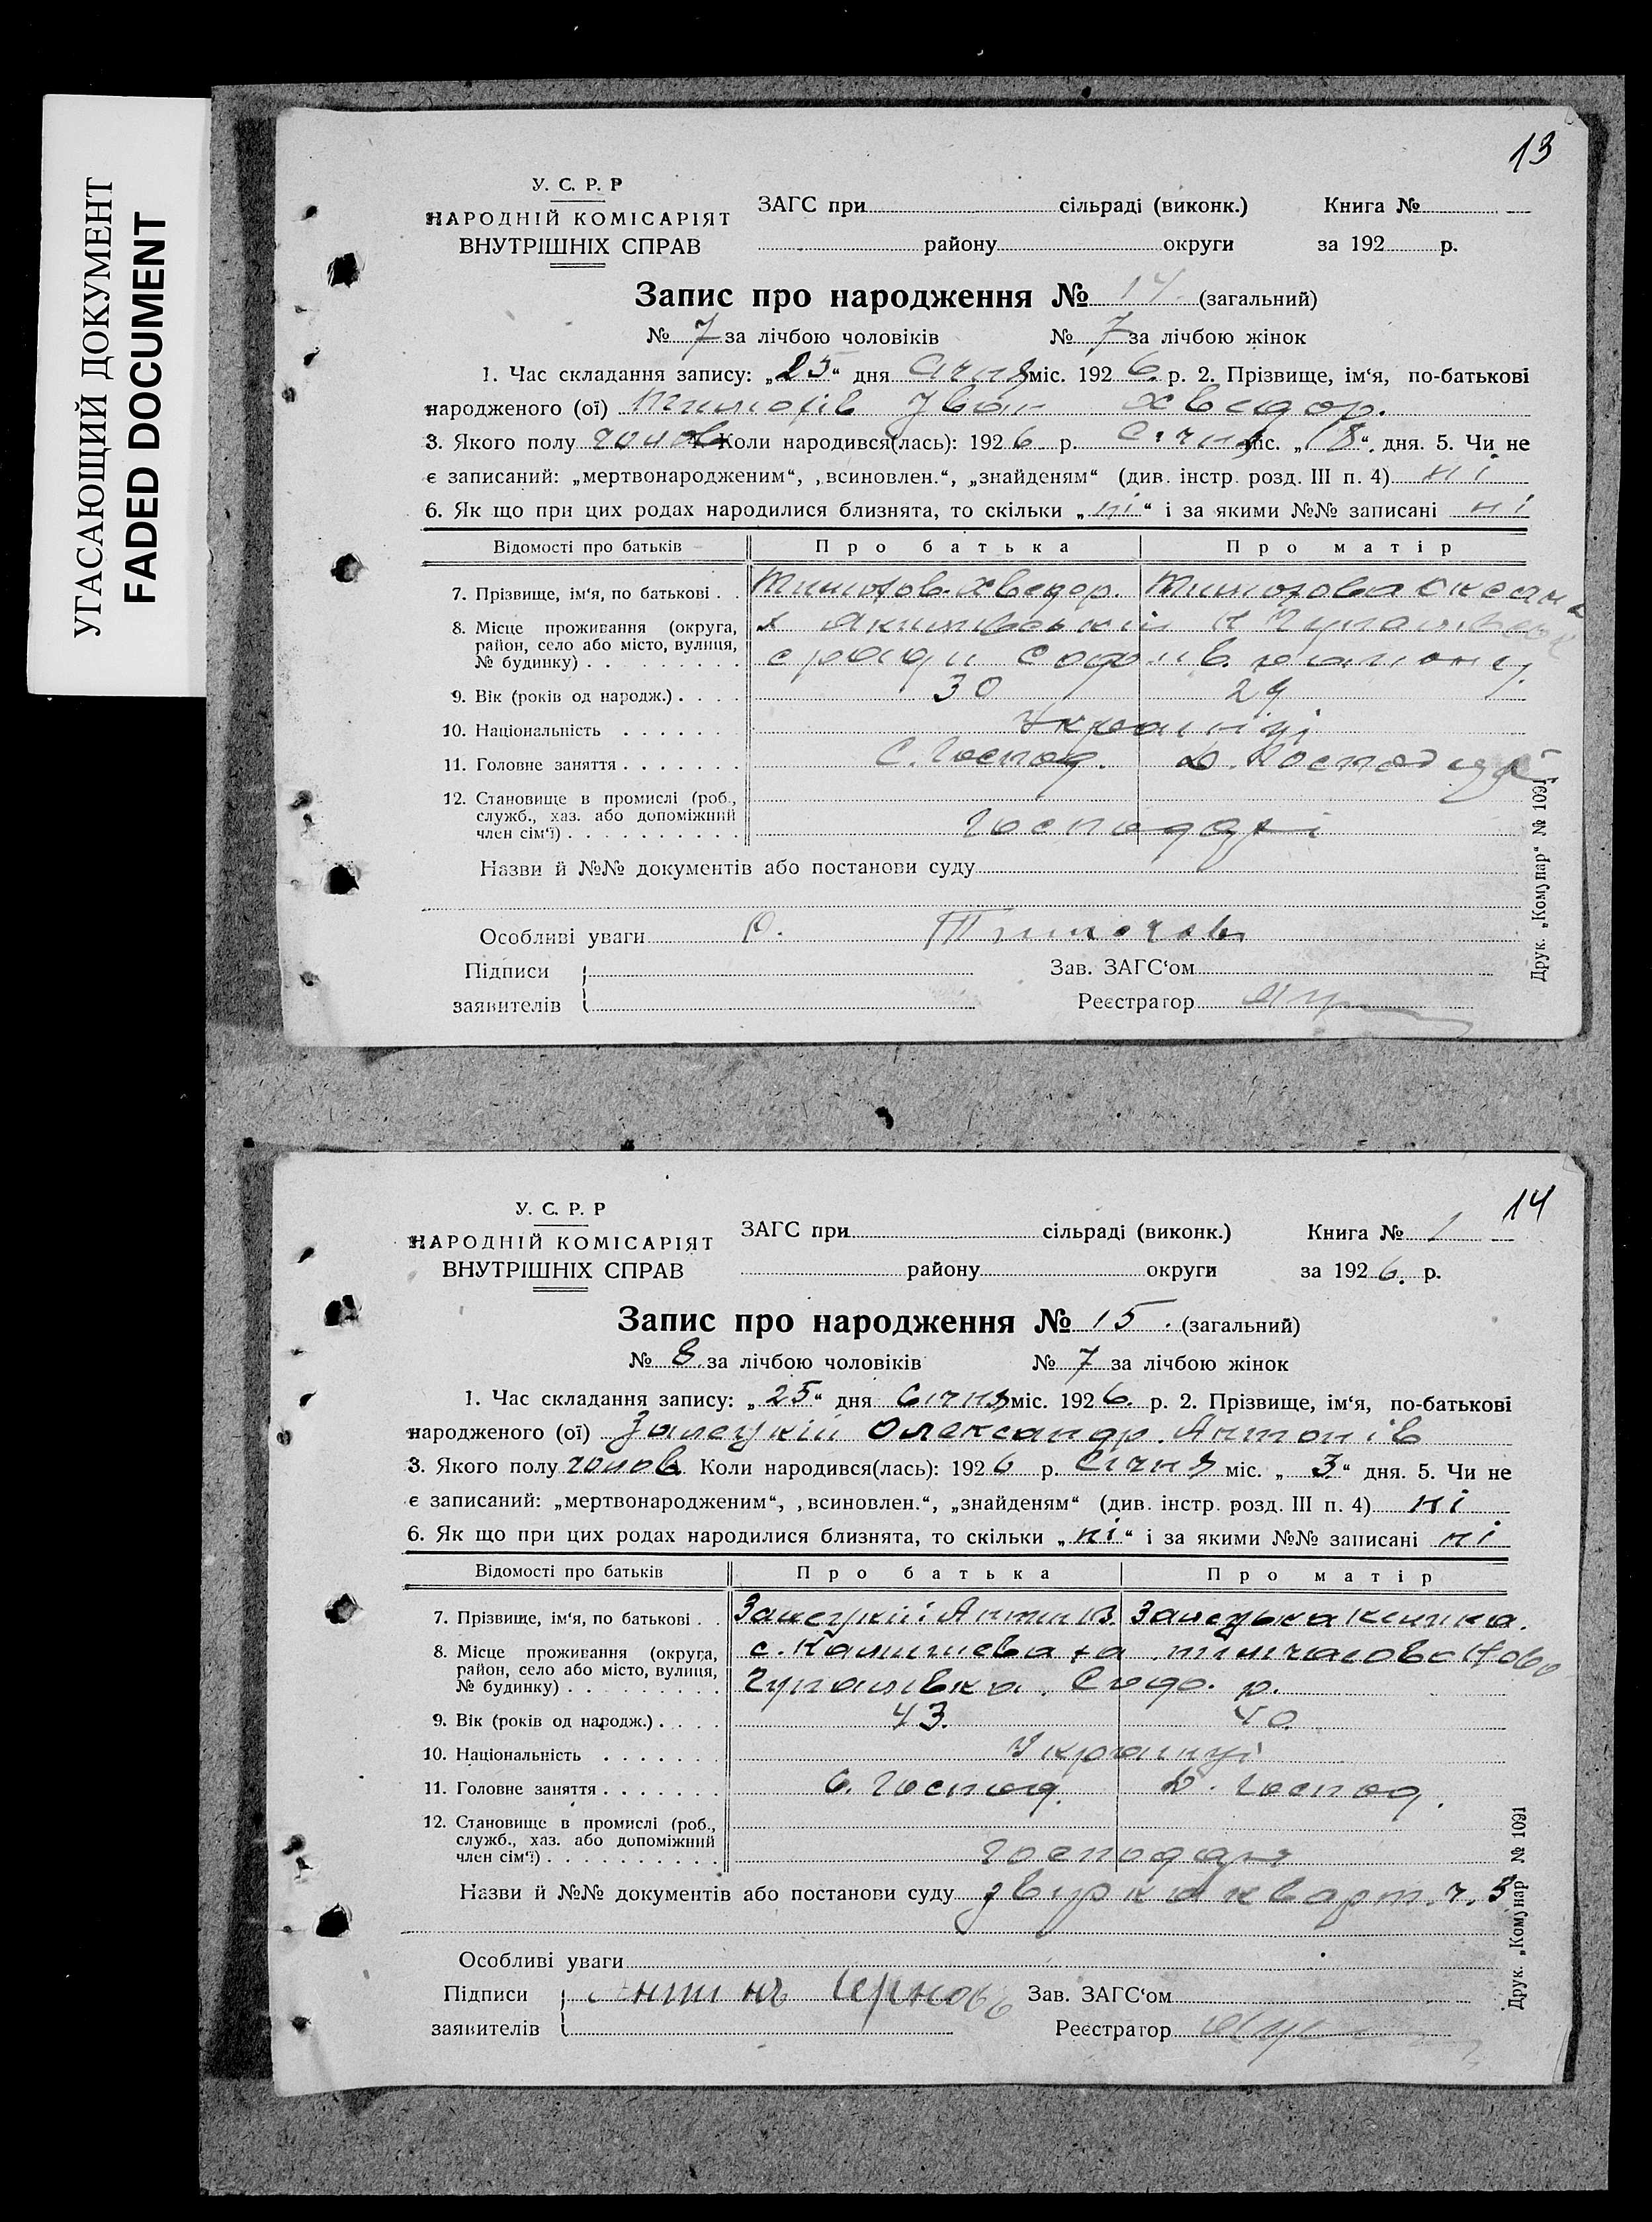 УГАСАЮЩИЙ ДОКУМЕНТ
FADED DOCUMENT
13
У. С. Р. Р
НАРОДНІЙ КОМІСАРІЯТ
ВНУТРІШНІХ СПРАВ
ЗАГС при сільраді (виконк.) Книга №
району округи за 192 р.
Запис про народження № 14 (загальний)
№ 7 за лічбою чоловіків № 7 за лічбою жінок
1. Час складання запису: „25“ дня Січня міс. 1926. р. 2. Прізвище, ім‘я, по-батькові
народженого (ої) Тимохів Іван Хведор.
3. Якого полу чолов Коли народився(лась): 1926 р. Січня міс. „18“. дня. 5. Чи не
є записаний: „мертвонародженим“, „всиновлен.“, „знайденям“ (див. інстр. розд. III п. 4) ні
6. Як що при цих родах народилися близнята, то скільки „ні“ і за якими №№ записані ні
Відомості про батьків Про батька Про матір
7. Прізвище, ім‘я, по батькові . . Тимохов Хведор. Тимохова Оксана
8. Місце проживання (округа,
район, село або місто, вулиця,
№ будинку) . . . . . . . . .
9. Вік (років од народж.) . . . . 30 29
10. Національність . . . . . . Українці
11. Головне заняття . . . . . . . С. Господ. Д. Господар
12. Становище в промислі (роб.,
служб., хаз. або допоміжний
член сім‘ї) . . . . . . . . . . Господарі
Назви й №№ документів або постанови суду
Особливі уваги Тимохов
Підписи Зав. ЗАГС‘ом
заявителів Реєстратор
Друк. „Комунар“ № 1091
14
У. С. Р. Р
НАРОДНІЙ КОМІСАРІЯТ
ВНУТРІШНІХ СПРАВ
ЗАГС при сільраді (виконк.) Книга № 1
району округи за 1926. р.
Запис про народження № 15. (загальний)
№ 8 за лічбою чоловіків № 7 за лічбою жінок
1. Час складання запису: „25“ дня Січня міс. 1926. р. 2. Прізвище, ім‘я, по-батькові
народженого (ої) Залецкій Олександр. Антонів
3. Якого полу чолов. Коли народився(лась): 1926 р. Січня міс. „3“ дня. 5. Чи не
є записаний: „мертвонародженим“, „всиновлен.“, „знайденям“ (див. інстр. розд. III п. 4) ні
6. Як що при цих родах народилися близнята, то скільки „ні“ і за якими №№ записані ні
Відомості про батьків Про батька Про матір
7. Прізвище, ім‘я, по батькові . . Залецкій Антін Залецька
8. Місце проживання (округа, с. тимчасово Ново
район, село або місто, вулиця,
№ будинку) . . . . . . . . . Чупалівка. Содо. р.
9. Вік (років од народж.) . . . . 43. 40
10. Національність . . . . . . Українці
11. Головне заняття . . . . . . . С. Господ. Д. Господ.
12. Становище в промислі (роб.,
служб., хаз. або допоміжний
член сім‘ї) . . . . . . . . . . Господарі
Назви й №№ документів або постанови суду
Особливі уваги
Підписи Зав. ЗАГС‘ом
заявителів Реєстратор
Друк. „Комунар“ № 1091